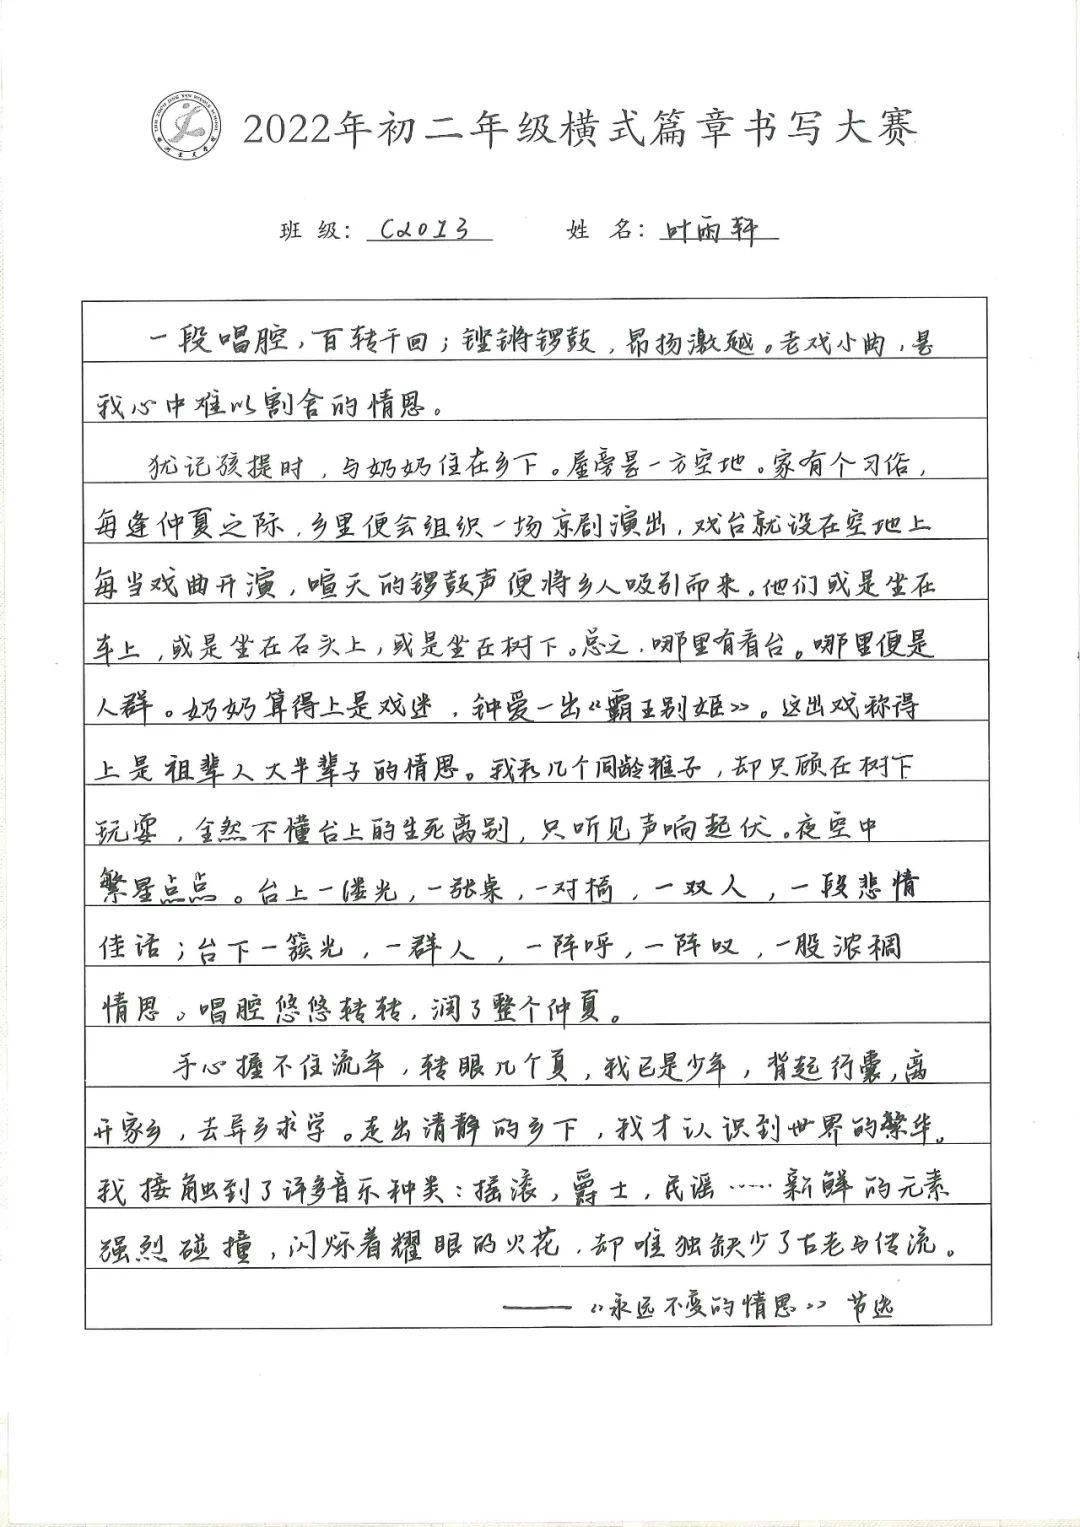 2022年初二年级横式篇章书写大赛
班 级: C2013 姓 名: 叶雨轩
一段唱腔，百转千回；铿锵锣鼓，昂扬激越。老戏小曲，是
我心中难以割舍的情思。
犹记孩提时，与奶奶住在乡下。屋旁是一方空地。家有个习俗，
每逢仲夏之际，乡里便会组织一场京剧演出，戏台就设在空地上
每当戏曲开演，喧天的锣鼓声便将乡人吸引而来。他们或是坐在
车上，或是坐在石头上，或是坐在树下。总之，哪里有看台。哪里便是
人群。奶奶算得上是戏迷，钟爱一出《霸王别姬》。这出戏称得
上是祖辈人大半辈子的情思。我和几个同龄稚子，却只顾在树下
玩耍，全然不懂台上的生死离别，只听见声响起伏。夜空中
繁星点点。台上一溇光，一张桌，一对椅，一双人，一段悲情
佳话；台下一簇光，一群人，一阵呼，一阵叹，一股浓稠
情思。唱腔悠悠转转，润了整个仲夏。
手心握不住流年，转眼几个夏，我已是少年，背起行囊，离
开家乡，去异乡求学。走出清静的乡下，我才认识到世界的繁华。
我接触到了许多音乐种类：摇滚，爵士，民谣……新鲜的元素
强烈碰撞，闪烁着耀眼的火花，却唯独缺少了古老与传流。
——《永远不变的情思》节选